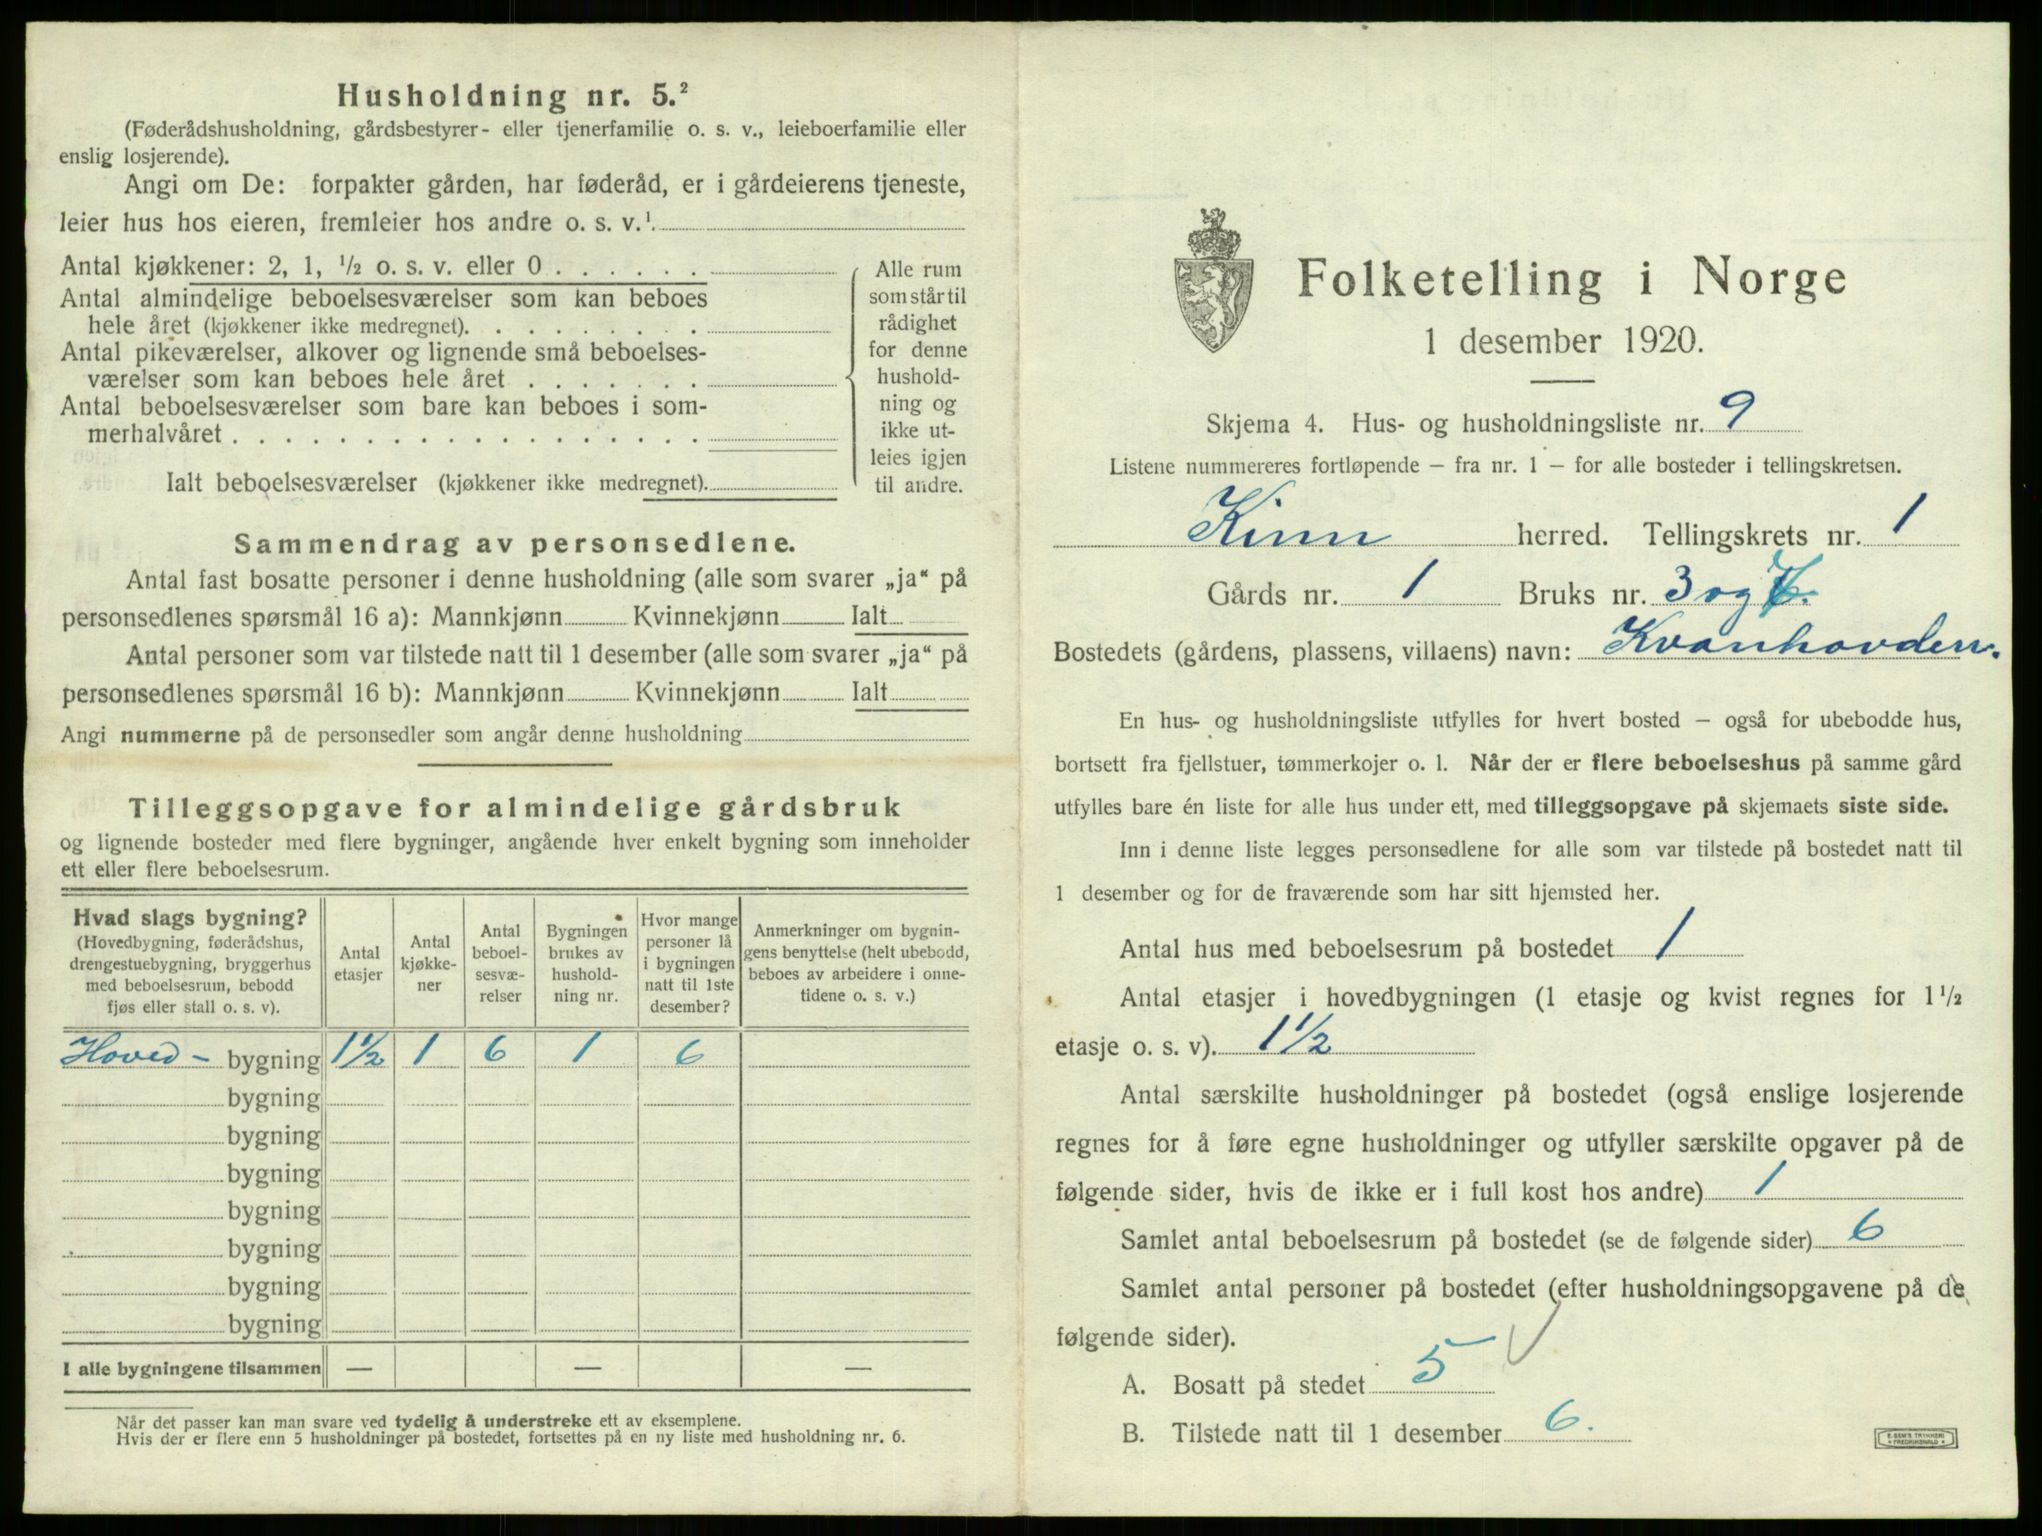 Husholdning nr. 5.²
(Føderådshusholdning, gårdsbestyrer- eller tjenerfamilie o. s. v., leieboerfamilie eller
enslig losjerende).
Angi om De: forpakter gården, har føderåd, er i gårdeierens tjeneste,
leier hus hos eieren, fremleier hos andre o. s. v.¹
Antal kjøkkener: 2, 1, ½ o. s. v. eller 0 . . . . . .
Antal almindelige beboelsesværelser som kan beboes
hele året (kjøkkener ikke medregnet). . . . . . . . .
Antal pikeværelser, alkover og lignende små beboelses-
værelser som kan beboes hele året . . . . . . .
Antal beboelsesværelser som bare kan beboes i som-
merhalvåret . . . . . . . . . . . . . . . . . .
Ialt beboelsesværelser (kjøkkener ikke medregnet).
Alle rum
som står til
rådighet
for denne
hushold-
ning og
ikke ut-
leies igjen
til andre.
Sammendrag av personsedlene.
Antal fast bosatte personer i denne husholdning (alle som svarer „ja“ på
personsedlenes spørsmål 16 a): Mannkjønn Kvinnekjønn Ialt
Antal personer som var tilstede natt til 1 desember (alle som svarer „ja“ på
personsedlenes spørsmål 16 b): Mannkjønn Kvinnekjønn Ialt
Angi nummerne på de personsedler som angår denne husholdning
Tilleggsopgave for almindelige gårdsbruk
og lignende bosteder med flere bygninger, angående hver enkelt bygning som inneholder
ett eller flere beboelsesrum.
Hvad slags bygning?
(Hovedbygning, føderådshus,
drengestuebygning, bryggerhus
med beboelsesrum, bebodd
fjøs eller stall o. s. v).
Antal
etasjer
Antal
kjøkke-
ner
Antal
beboel-
sesvæ-
relser
Bygningen
brukes av
hushold-
ning nr.
Hvor mange
personer lå
i bygningen
natt til 1ste
desember?
Anmerkninger om bygnin-
gens benyttelse (helt ubebodd,
beboes av arbeidere i onne-
tidene o. s. v.)
Hoved- bygning 1½ 1 6 1 6
bygning
bygning
bygning
bygning
bygning
bygning
bygning
I alle bygningene tilsammen — — —
Når det passer kan man svare ved tydelig å understreke ett av eksemplene.
Hvis der er flere enn 5 husholdninger på bostedet, fortsettes på en ny liste med husholdning nr. 6.
Folketelling i Norge
1 desember 1920.
Skjema 4. Hus- og husholdningsliste nr. 9
Listene nummereres fortløpende – fra nr. 1 – for alle bosteder i tellingskretsen.
Kinn herred. Tellingskrets nr. 1
Gårds nr. 1 Bruks nr. 3 og
Bostedets (gårdens, plassens, villaens) navn: Kvanhovden.
En hus- og husholdningsliste utfylles for hvert bosted – også for ubebodde hus,
bortsett fra fjellstuer, tømmerkojer o. l. Når der er flere beboelseshus på samme gård
utfylles bare én liste for alle hus under ett, med tilleggsopgave på skjemaets siste side.
Inn i denne liste legges personsedlene for alle som var tilstede på bostedet natt til
1 desember og for de fraværende som har sitt hjemsted her.
Antal hus med beboelsesrum på bostedet 1
Antal etasjer i hovedbygningen (1 etasje og kvist regnes for 1½
etasje o. s. v). 1½
Antal særskilte husholdninger på bostedet (også enslige losjerende
regnes for å føre egne husholdninger og utfyller særskilte opgaver på de
følgende sider, hvis de ikke er i full kost hos andre) 1
Samlet antal beboelsesrum på bostedet (se de følgende sider) 6
Samlet antal personer på bostedet (efter husholdningsopgavene på de
følgende sider).
A. Bosatt på stedet 5
B. Tilstede natt til 1 desember 6.
E. SEM'S TRYKKERI
FREDRIKSHALD